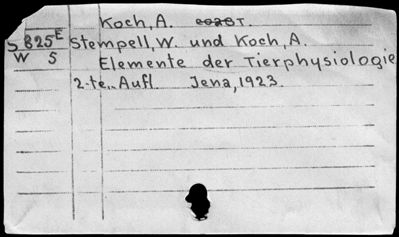 Koch, A.
S 825 E Stempell, W. und Koch, A.
W 5 Elemente der Tierphysiologie
2-te.. Aufl. Jena, 1923.